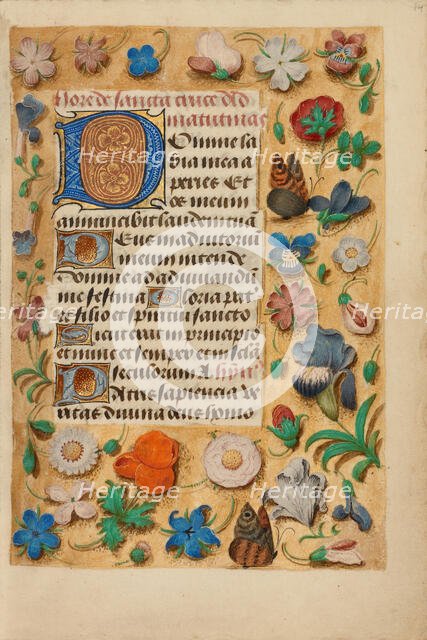 Hore de sancta cruce Ad
matutinas
Domine la
bia mea a
peries Et
os meum
annunciabit laudem tuam
Deus in adiutoriu
meum intende
Domine ad adiuuandu
me festina Gloria pat
ri et filio et spiritui sancto
Sicut erat in principio
et nunc et semper et in secula
seculorum
Patris sapiencia de
uitas diuina
Heritage
Heritage
Heritage
Heritage
Heritage
Heritage